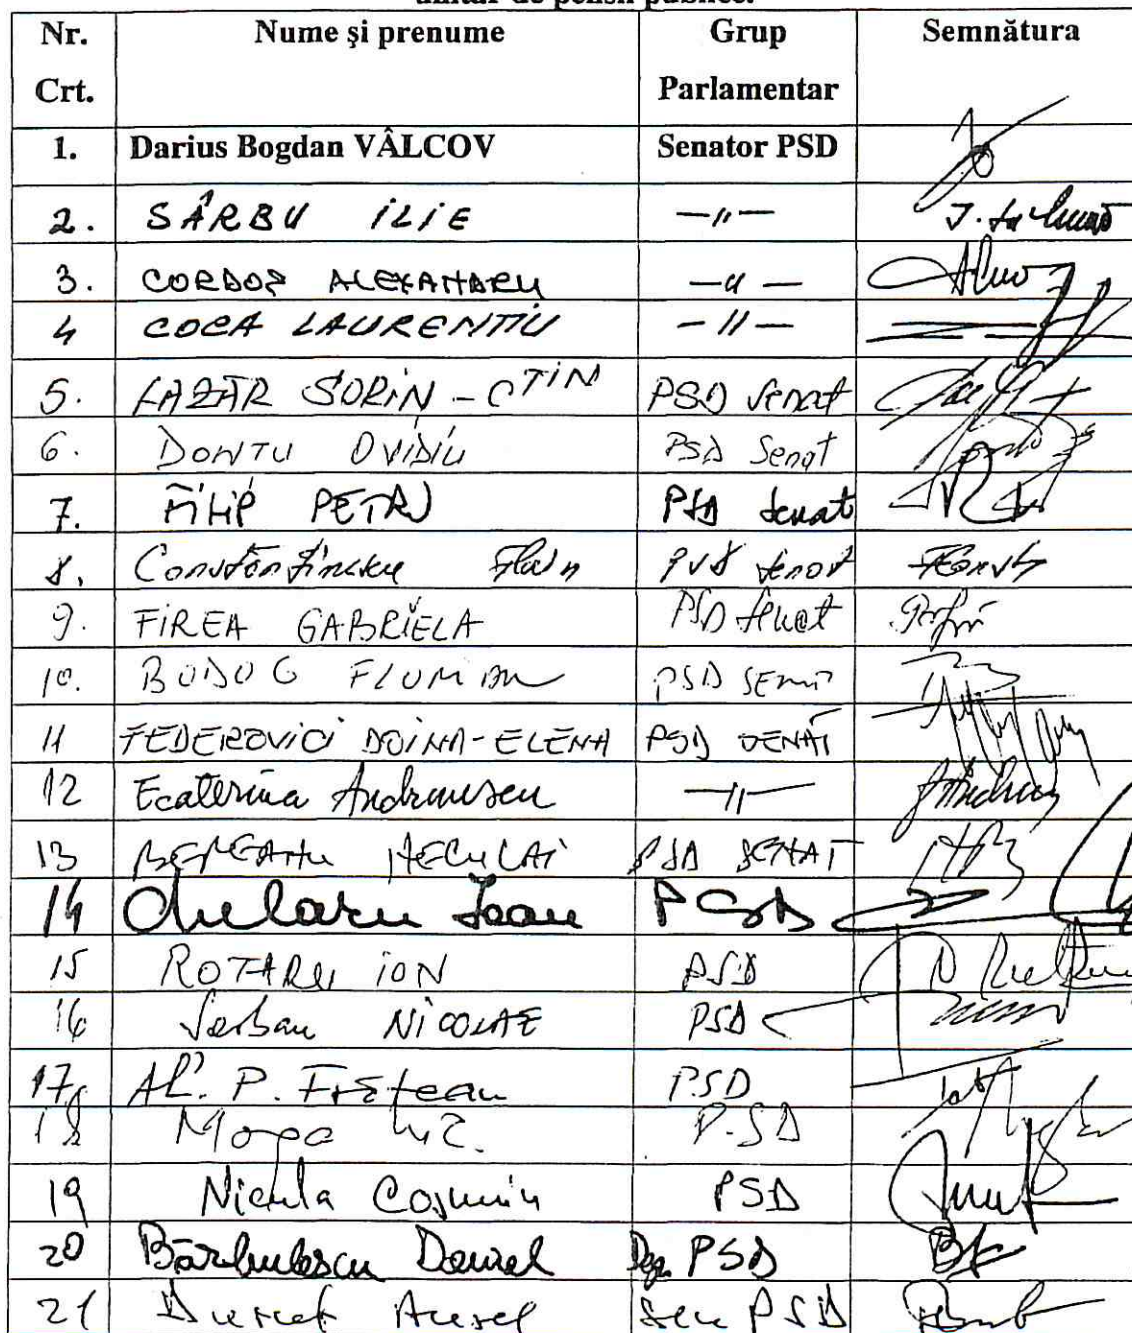 unitar de pensii publice.
Nr. Crt. Nume şi prenume Grup Parlamentar Semnătura
1. Darius Bogdan VÂLCOV Senator PSD
2. SÂRBU ILIE —"—
3. CORDOŞ ALEXANDRU —"—
4 COCA LAURENTIU —"—
5. LAZĂR SORIN - CTIN PSD Senat
6. DONTU OVIDIU PSD Senat
7. FILIP PETRU PSD Senat
8. Constantinescu Florin PSD Senat
9. FIREA GABRIELA PSD Senat
10. BODOG FLORIAN PSD SENAT
11 FEDEROVICI DOINA-ELENA PSD SENAT
12 Ecaterina Andronescu —"—
13 BEREANU NECULAI PSD SENAT
14 Chelaru Ioan PSD
15 ROTARU ION PSD
16 Şerban NICOLAE PSD
17 AL. P. Frăteanu PSD
18 Moga PSD
19 Nicula Cosmin PSD
20 Bărbulescu Daniel Dep. PSD
21 Aurel Sen PSD